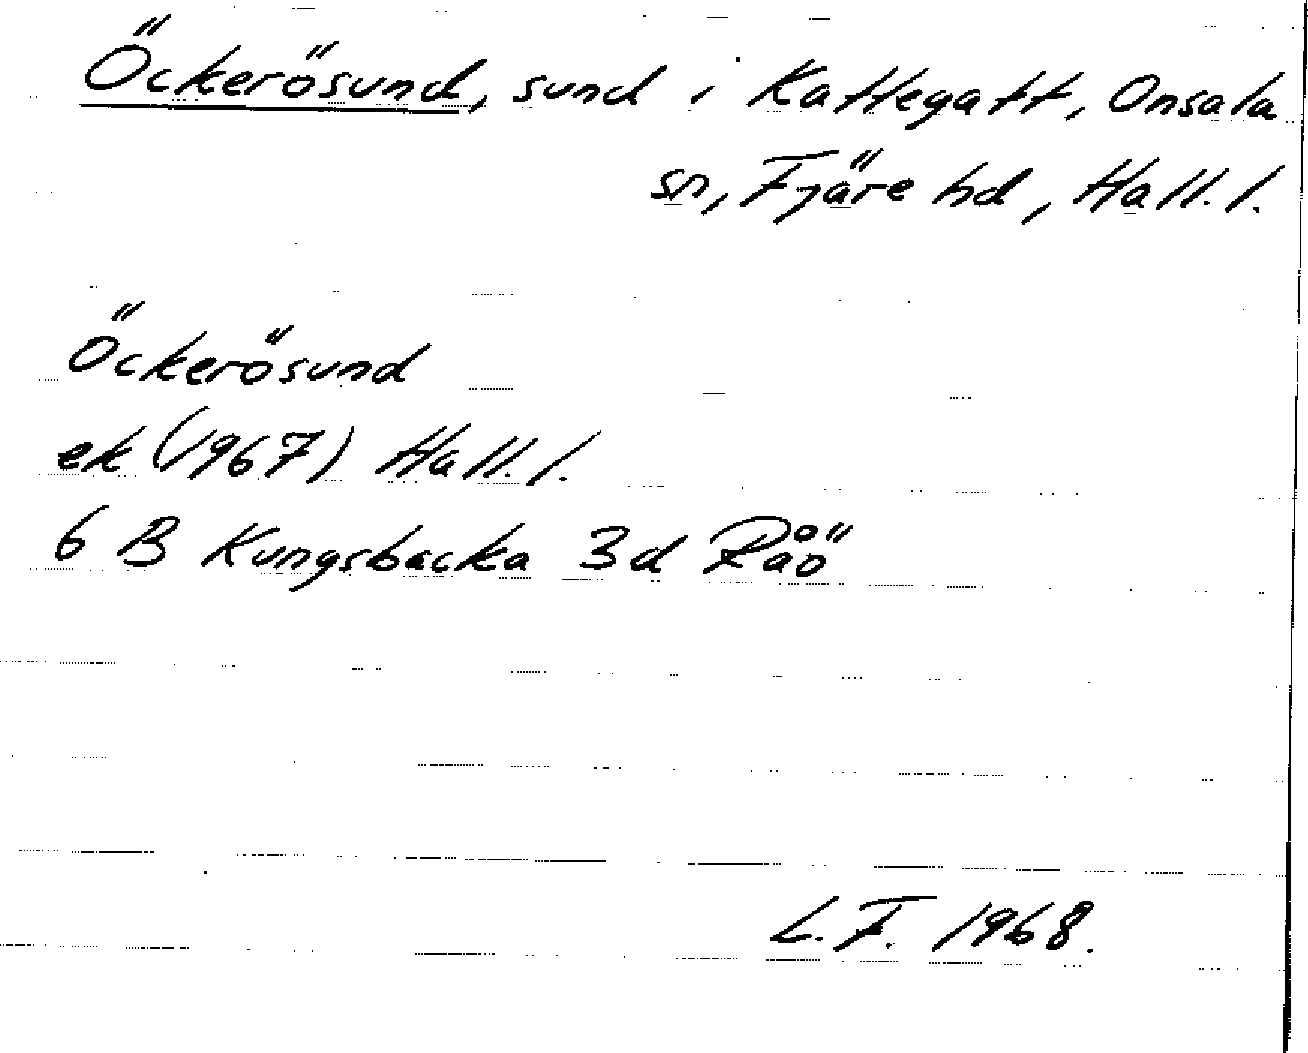 Öckerösund, sund i Kattegatt, Onsala
sn, Fjäre hd, Hall. l.
Öckerösund
ek (1967) Hall. l.
6 B Kungsbacka 3d Råö
L.F. 1968.